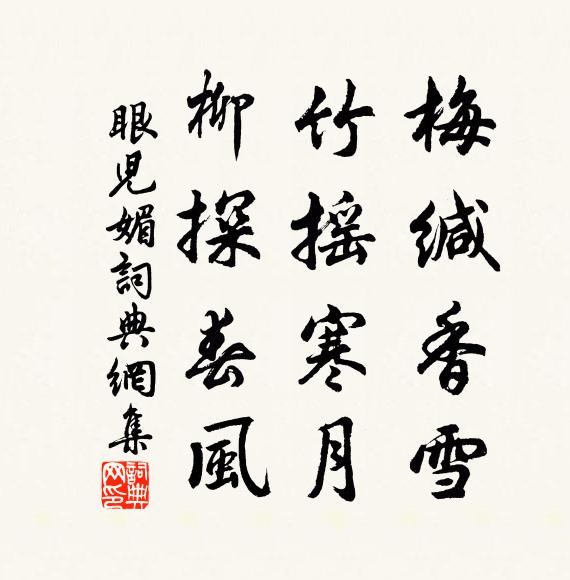 梅緘香雪
竹搖寒月
柳探春風
眼兒媚詞典網集
詞典网印